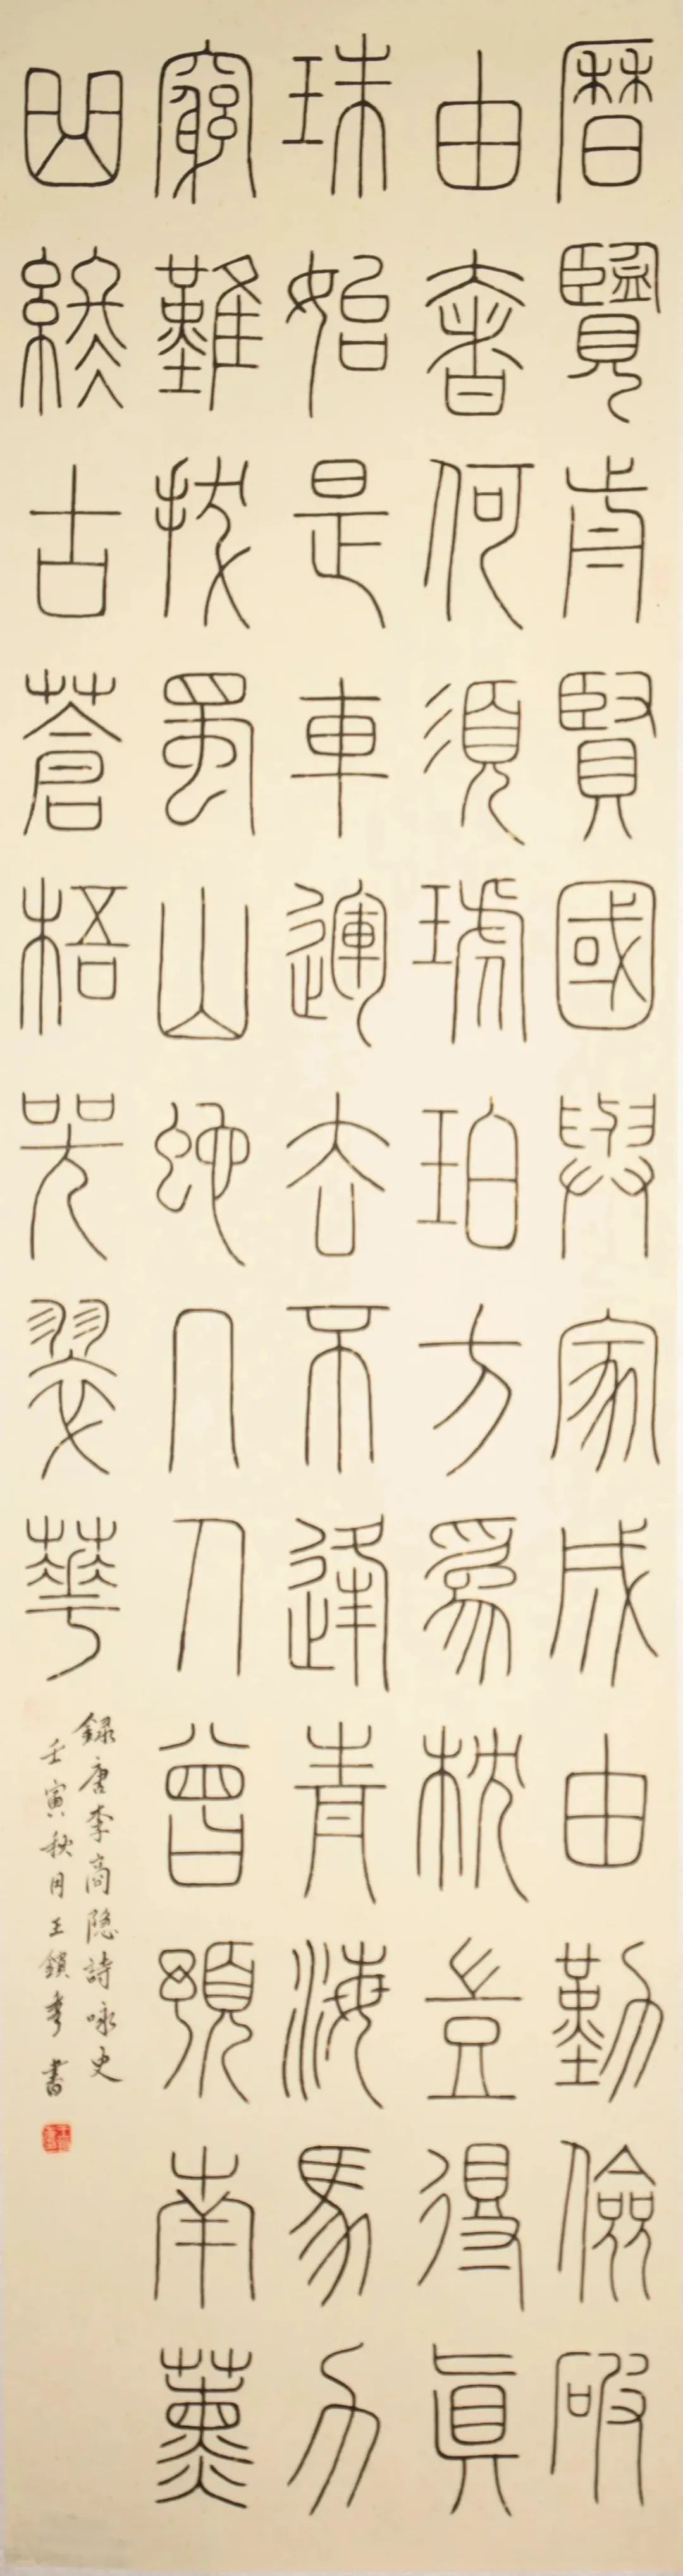 曆覽前賢國與家成由勤儉破
由奢何須琥珀方為枕豈得眞
珠始是車運去不逢青海馬力
窮難拔蜀山蛇几人曾預南薰
曲終古蒼梧哭翠華
錄唐李商隐詩咏史
壬寅秋月王鎖書